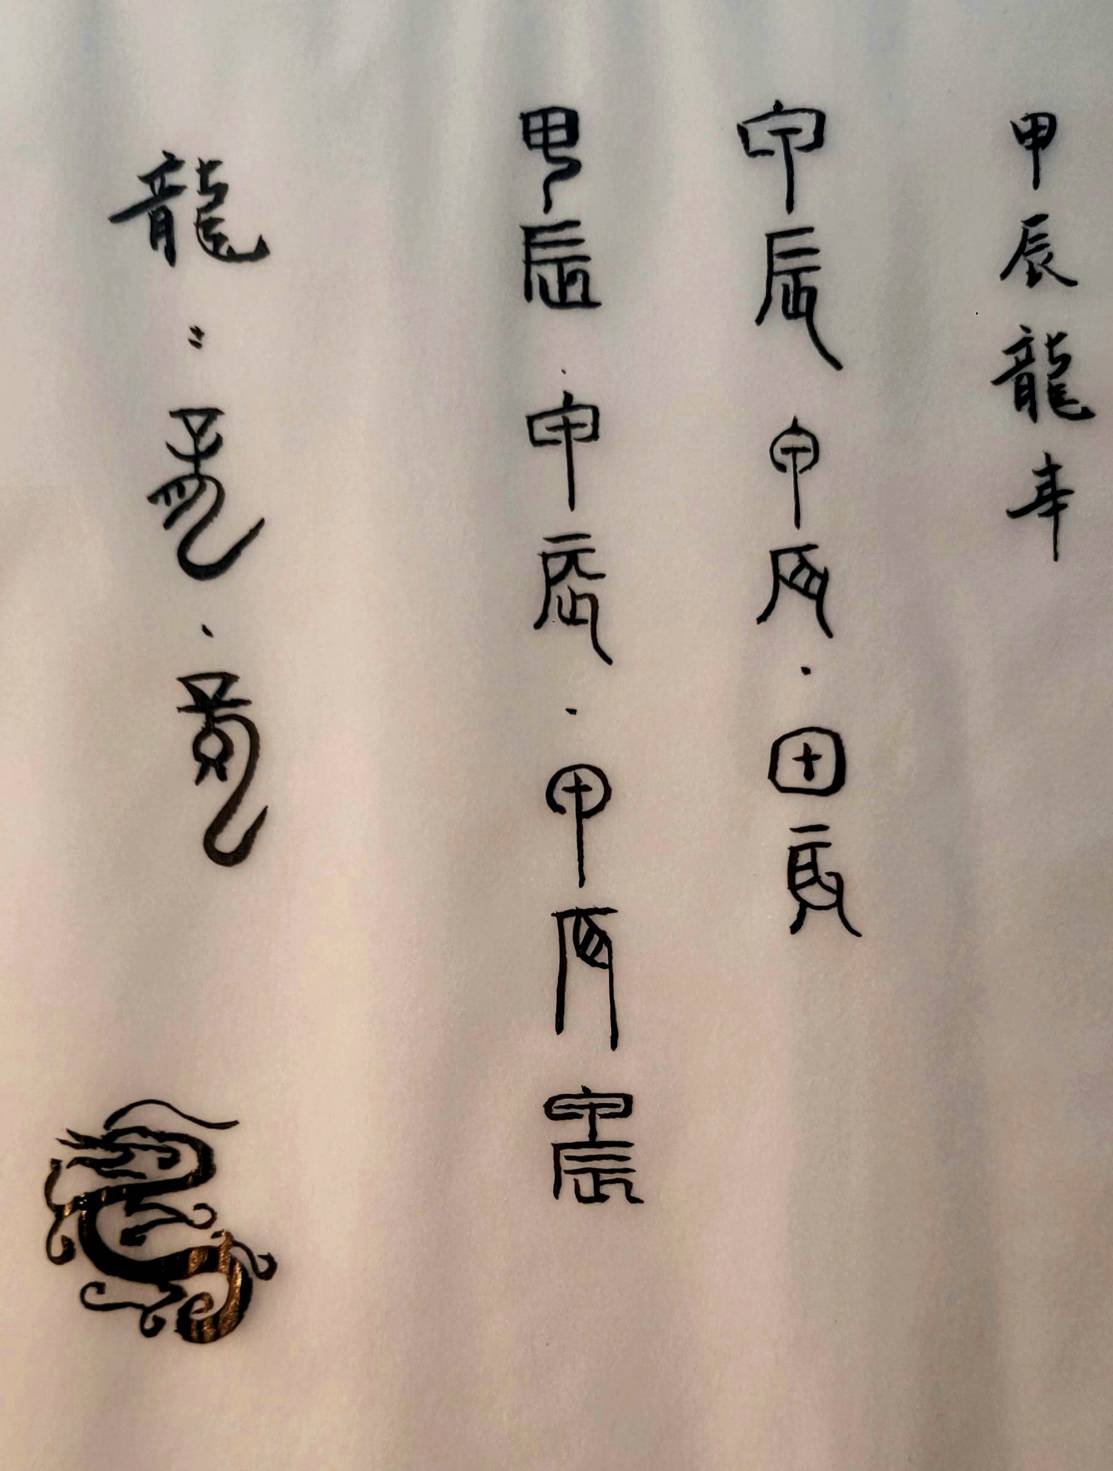 甲辰龍年
甲辰甲辰·甲辰
甲辰·甲辰·甲辰甲辰
龍:龍、龍